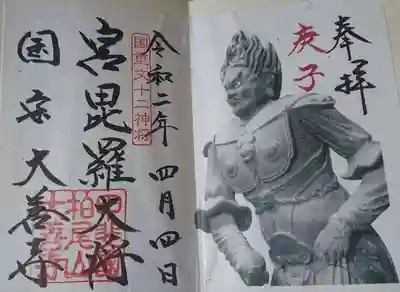 奉拝
庚子
令和二年 四月四日
国重文十二神将
宮毘羅大将
国宝 大善寺
柏尾山
大善寺